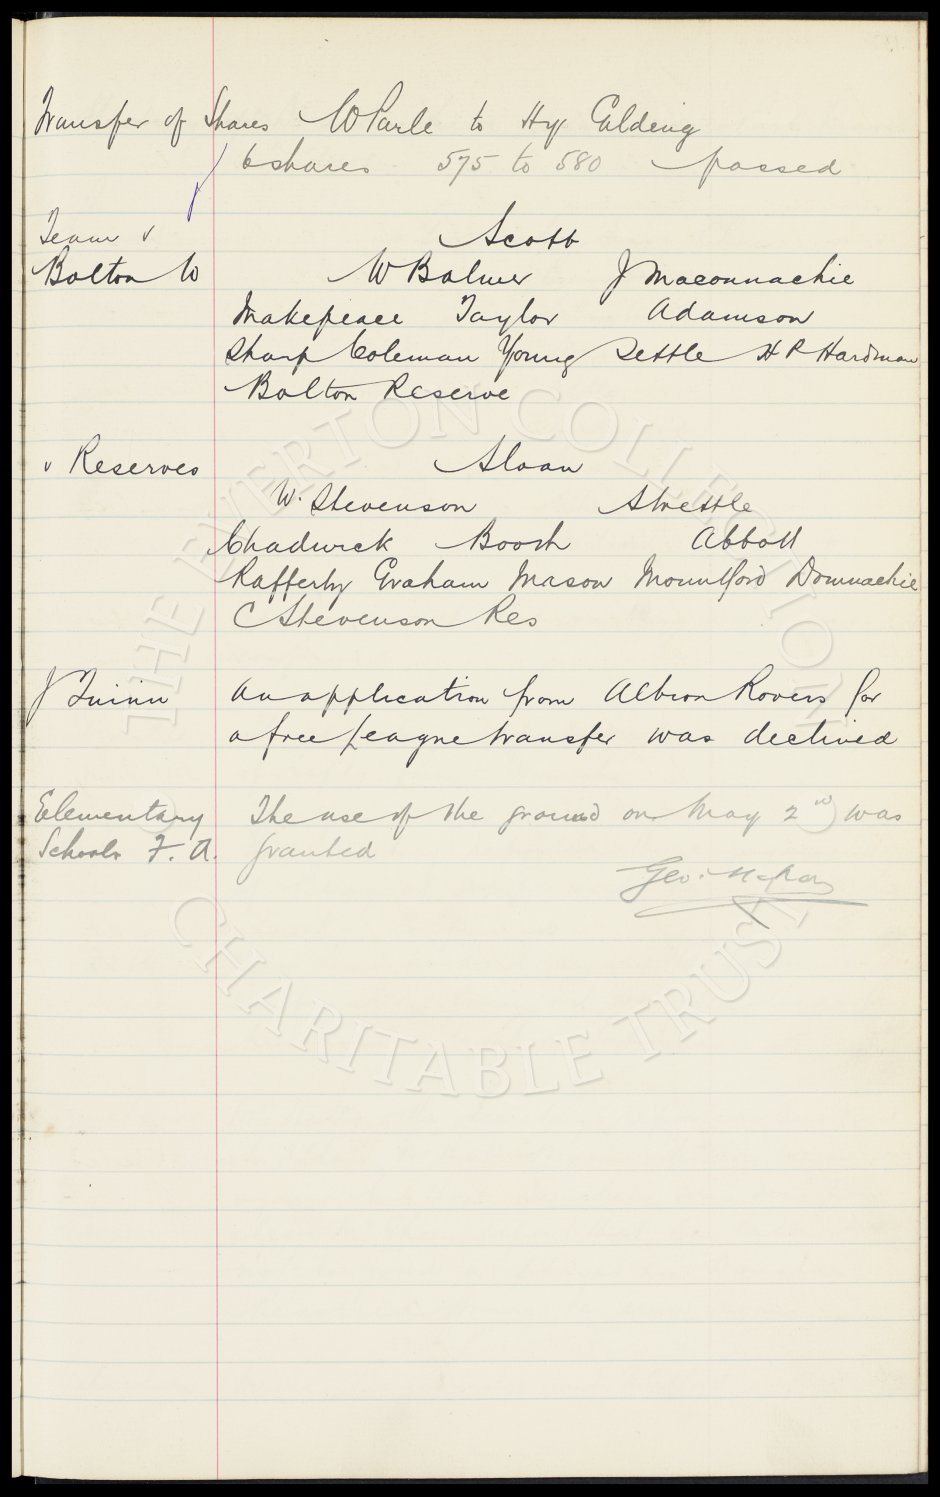 Transfer of Shares W Parle to Hy Calding
6 shares 575 to 580 passed
Team v Scott
Bolton W W Balmer J Maconnachie
Makepeace Taylor Adamson
Sharp Coleman Young Settle H P Hardman
Bolton Reserve
v Reserves Sloan
W. Stevenson Strettle
Chadwick Booth Abbott
Rafferty Graham Mason Mountford Donnachie
C Stevenson Res
J Quinn An application from Albion Rovers for
a free League transfer was declined
Elementary The use of the ground on May 2nd was
Schools F. A. granted
Geo.
THE EVERTON COLLECTION
CHARITABLE TRUST